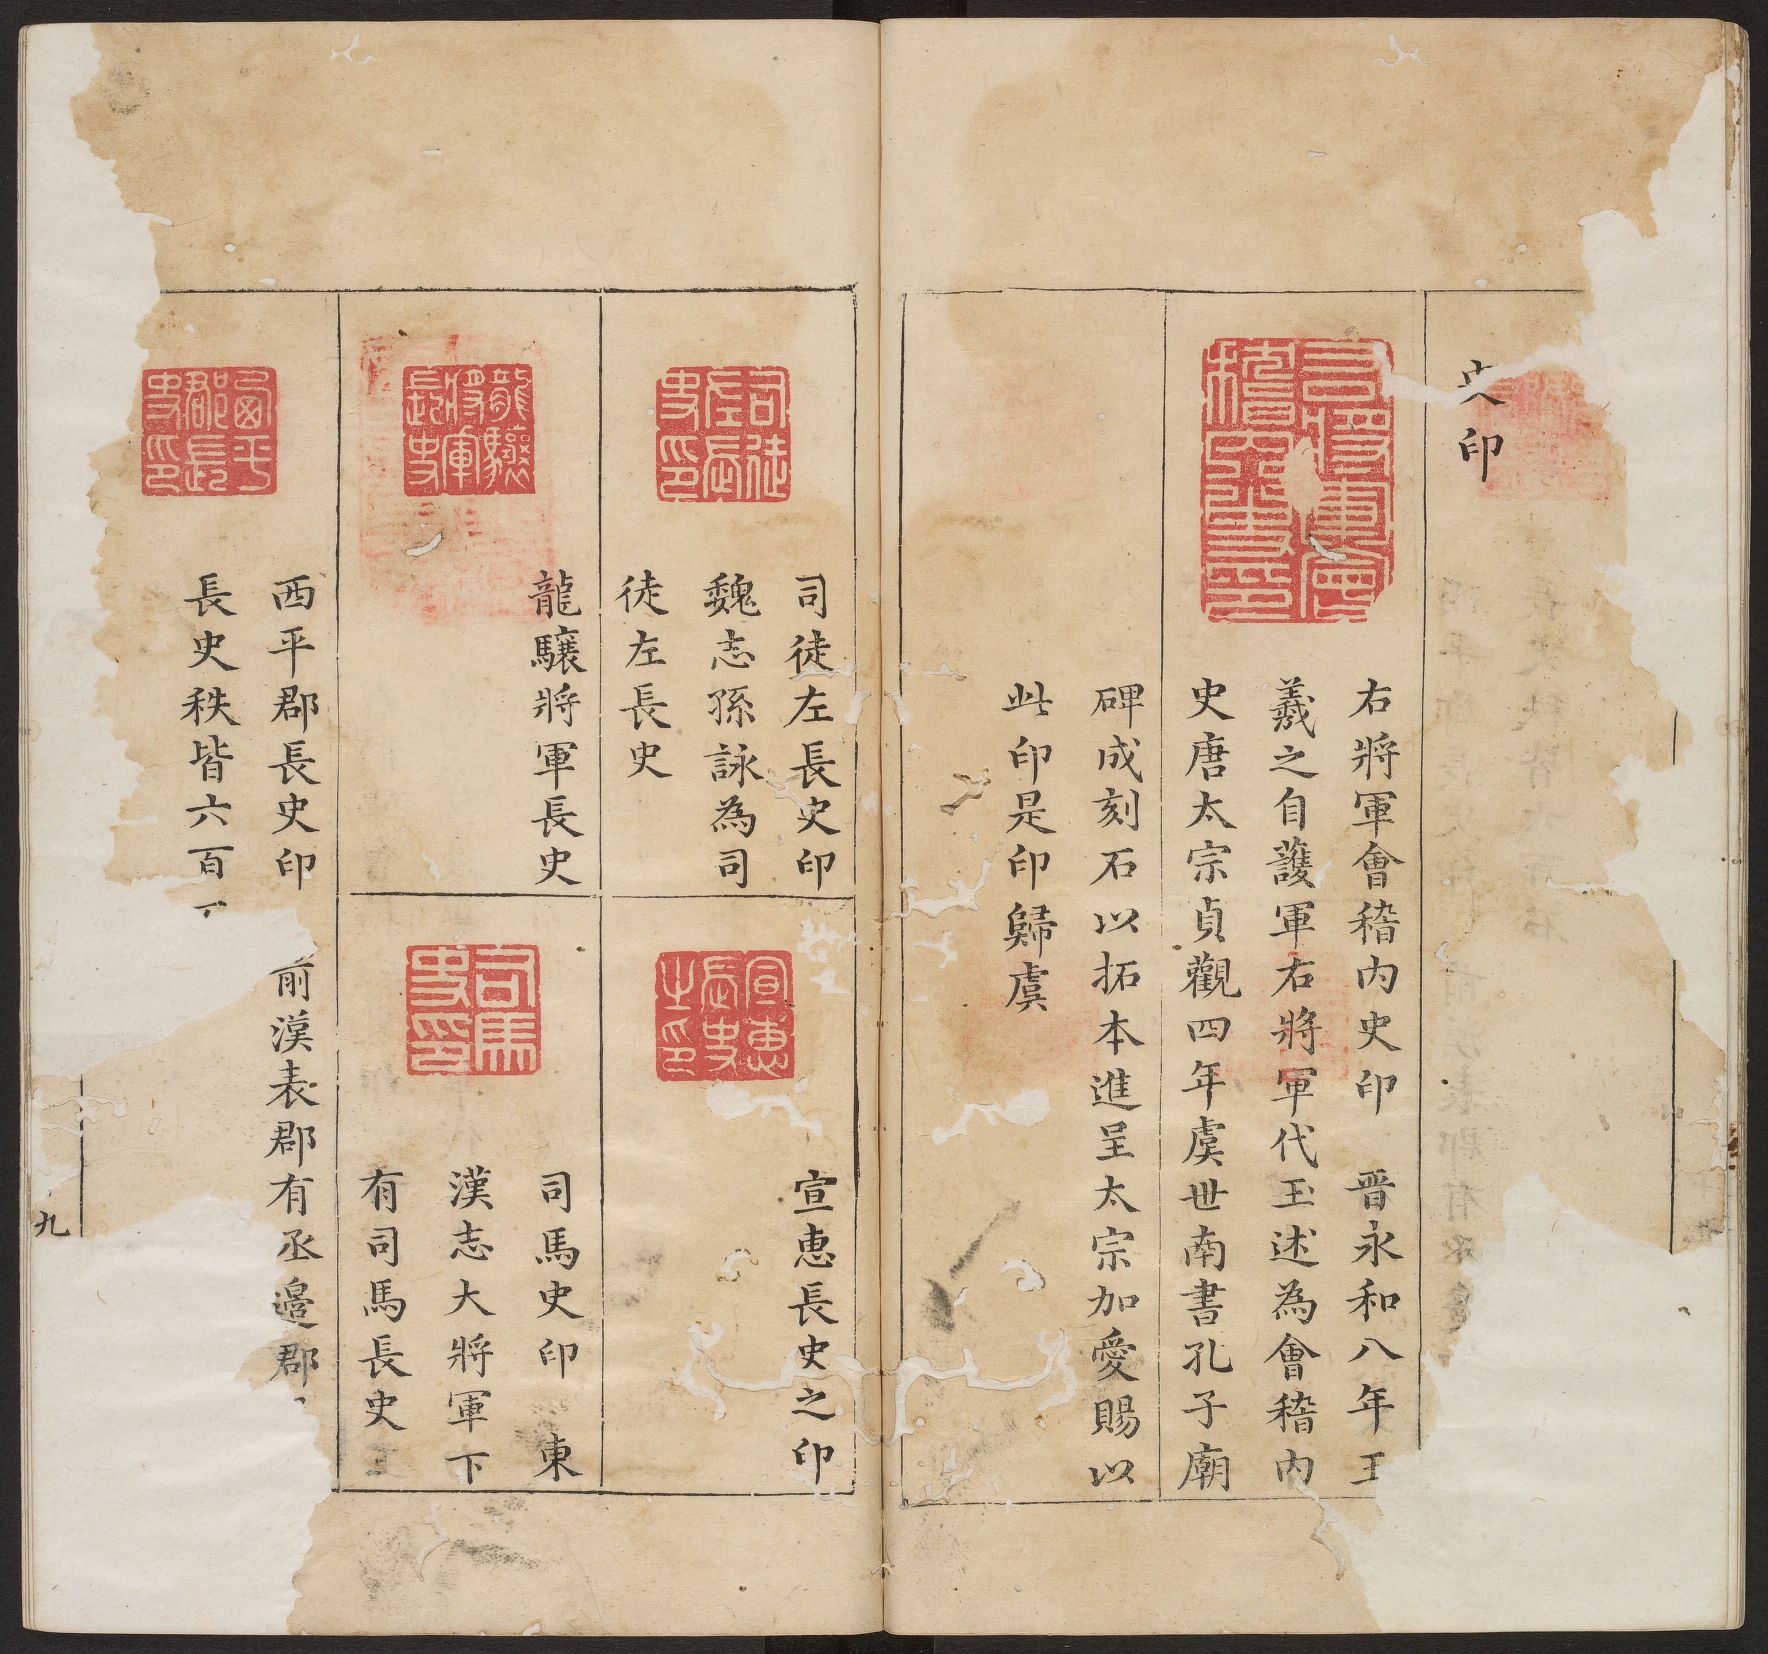 史印
右將軍會稽內史印 晉永和八年王
羲之自護軍右將軍代王述為會稽內
史唐太宗貞觀四年虞世南書孔子廟
碑成刻石以拓本進呈太宗加愛賜以
此印是印歸虞
司徒左長史印
魏志孫詠為司
徒左長史
宣惠長史之印
龍驤將軍長史
司馬史印 東
漢志大將軍下
有司馬長史
西平郡長史印 前漢表郡有丞邉郡
長史秩皆六百
九